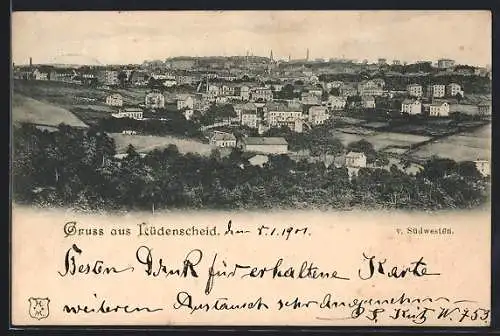 Gruss aus Lüdenscheid. den 5.1.1901. v. Südwesten.
Besten Dank für erhaltene Karte
weiteren Austausch sehr angenehm
W 753